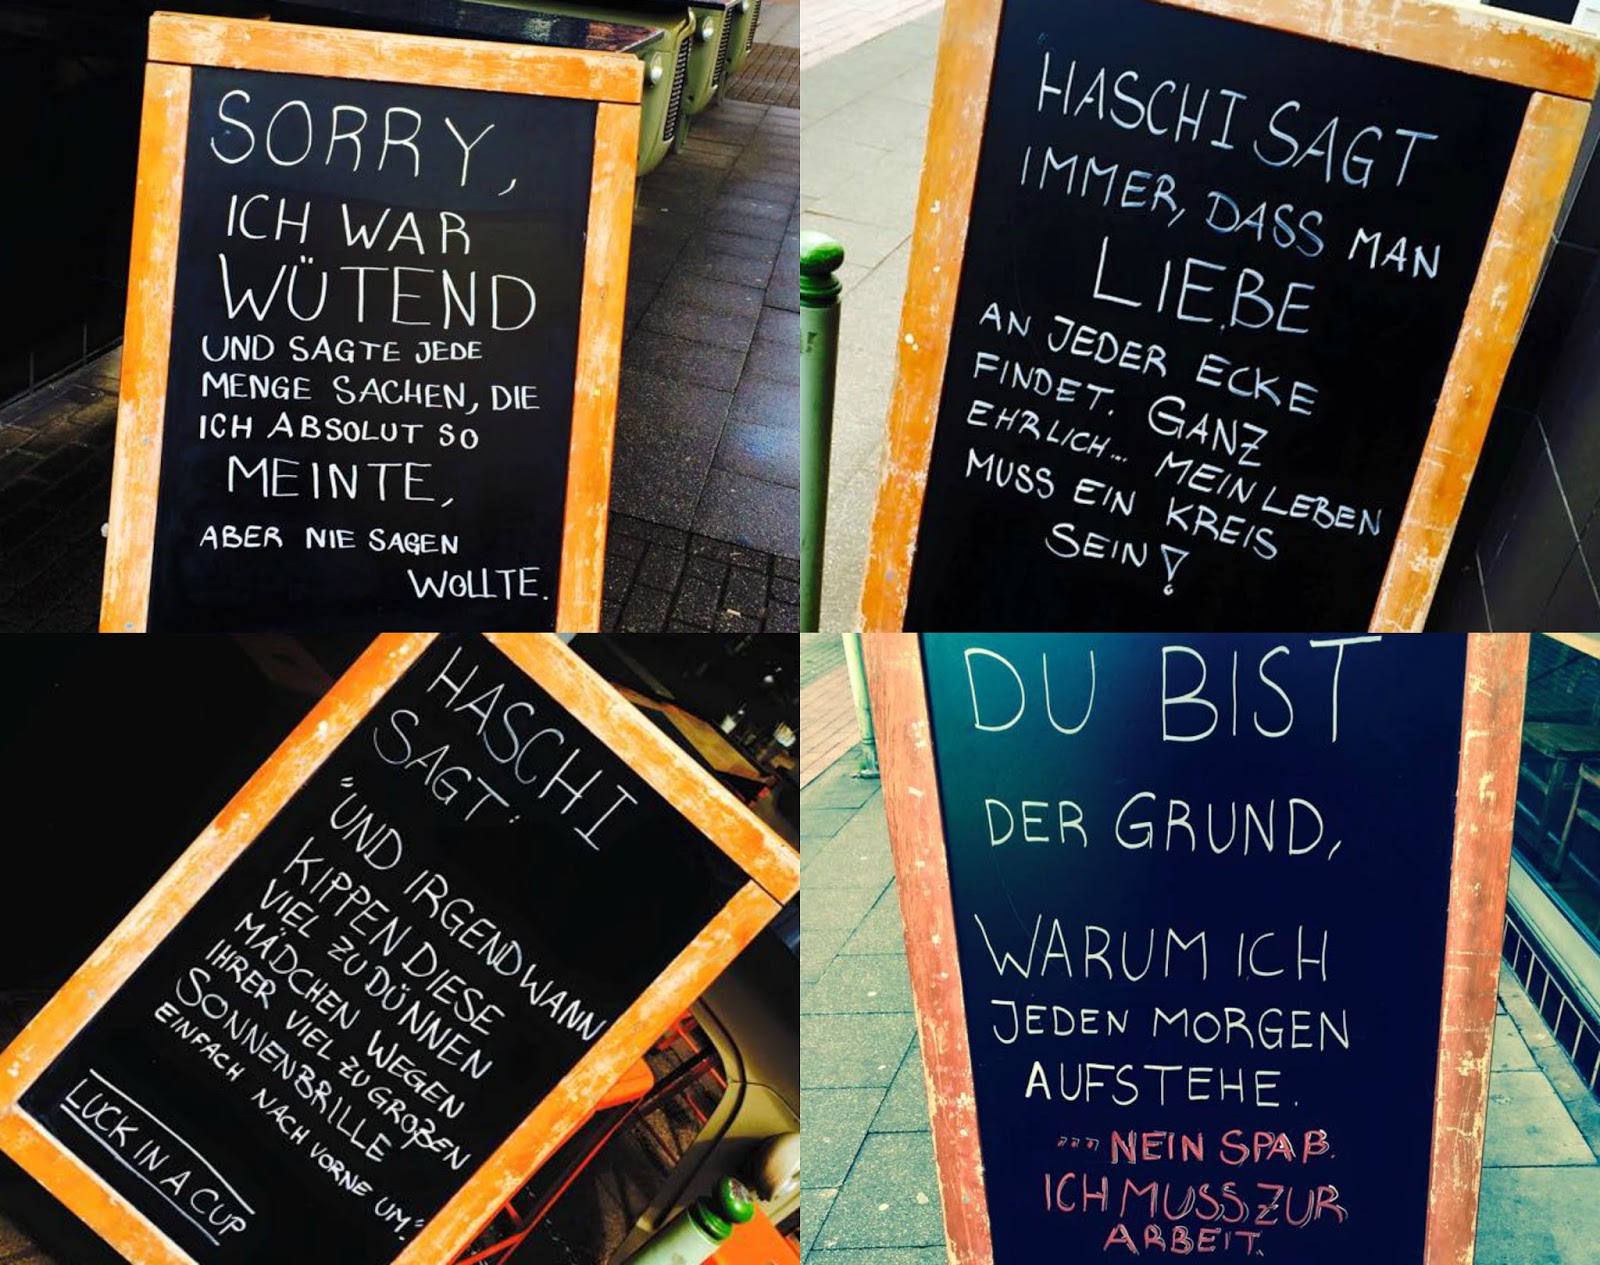 SORRY,
ICH WAR
WÜTEND
UND SAGTE JEDE
MENGE SACHEN, DIE
ICH ABSOLUT SO
MEINTE,
ABER NIE SAGEN
WOLLTE.
HASCHI SAGT
IMMER, DASS MAN
LIEBE
AN JEDER ECKE
FINDET. GANZ
EHRLICH... MEIN LEBEN
MUSS EIN KREIS
SEIN!
HASCHI
SAGT:
"UND IRGENDWANN
KIPPEN DIESE
VIEL ZU DÜNNEN
MÄDCHEN WEGEN
IHRER VIEL ZU GROßEN
SONNENBRILLE
EINFACH NACH VORNE UM."
LUCK IN A CUP
DU BIST
DER GRUND,
WARUM ICH
JEDEN MORGEN
AUFSTEHE.
... NEIN SPAß.
ICH MUSS ZUR
ARBEIT.